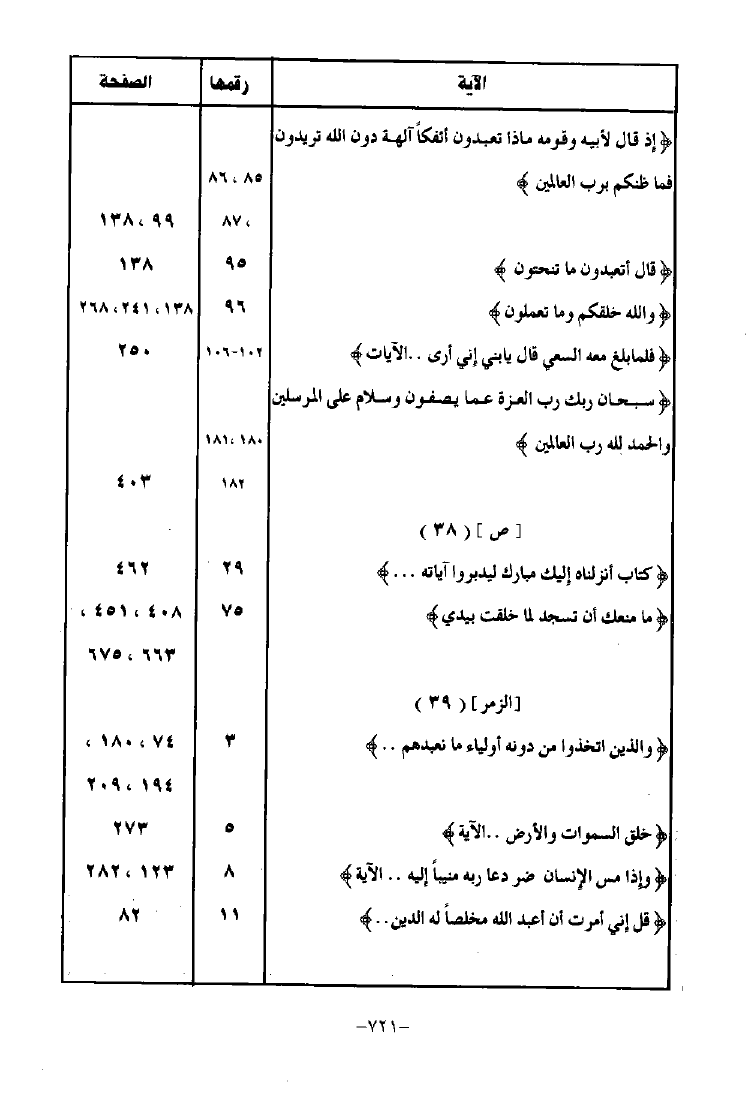 الآية رقمها الصفحة
﴿ إذ قال لأبيه وقومه ماذا تعبدون أئفكاً آلهة دون الله تريدون
فما ظنكم برب العالمين ﴾ ٨٥ ، ٨٦
، ٨٧ ٩٩ ، ١٣٨
﴿ قال أتعبدون ما تنحتون ﴾ ٩٥ ١٣٨
﴿ والله خلقكم وما تعملون ﴾ ٩٦ ١٣٨ ، ٢٤١ ، ٢٦٨
﴿ فلمابلغ معه السعي قال يابني إني أرى ..الآيات ﴾ ١٠٢-١٠٦ ٢٥٠
﴿ سبحان ربك رب العزة عما يصفون وسلام على المرسلين
والحمد لله رب العالمين ﴾ ١٨٠ ، ١٨١
١٨٢ ٤٠٣
[ ص ] ( ٣٨ )
﴿ كتاب أنزلناه إليك مبارك ليدبروا آياته ... ﴾ ٢٩ ٤٦٢
﴿ ما منعك أن تسجد لما خلقت بيدي ﴾ ٧٥ ٤٠٨ ، ٤٥١ ،
٦٦٣ ، ٦٧٥
[الزمر] ( ٣٩ )
﴿ والذين اتخذوا من دونه أولياء ما نعبدهم .. ﴾ ٣ ٧٤ ، ١٨٠ ،
١٩٤ ، ٢٠٩
﴿ خلق السموات والأرض ..الآية ﴾ ٥ ٢٧٣
﴿ وإذا مس الإنسان ضر دعا ربه منيباً إليه .. الآية ﴾ ٨ ١٢٣ ، ٢٨٢
﴿ قل إني أمرت أن أعبد الله مخلصاً له الدين.. ﴾ ١١ ٨٢
-٧٢١-